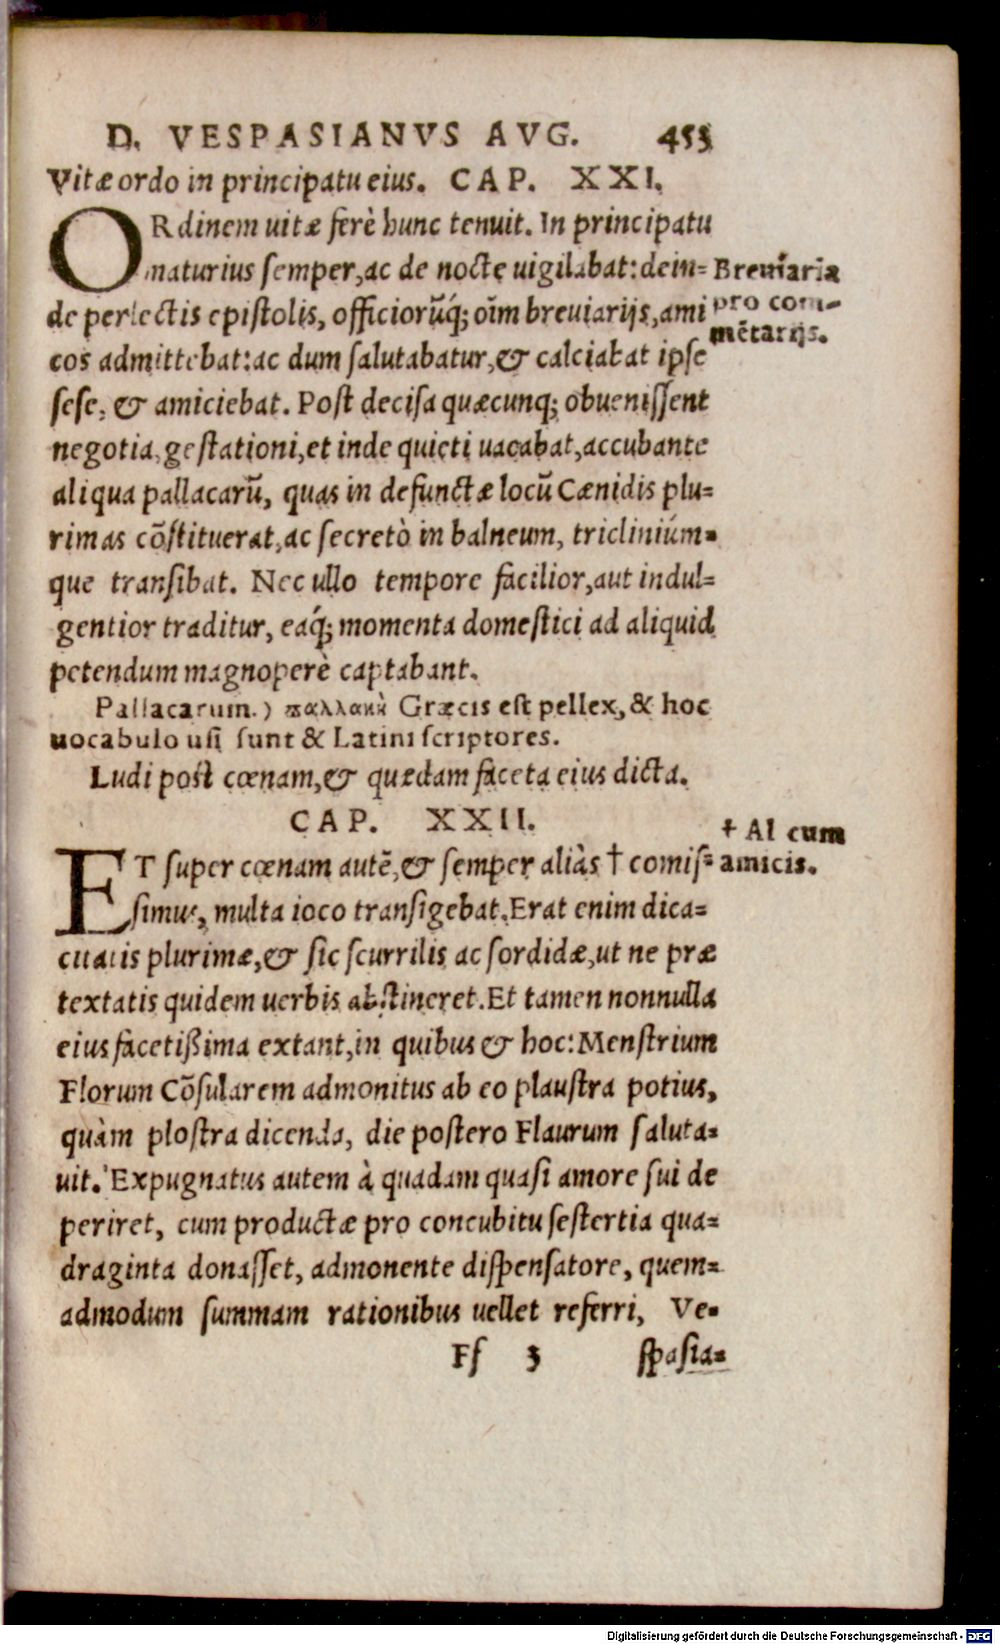 D. VESPASIANVS AVG. 453
Vitæ ordo in principatu eius. CAP. XXI.
ORdinem uitæ ferè hunc tenuit. In principatu
maturius semper, ac de nocte uigilabat: dein=
de perlectis epistolis, officiorũq́; oĩm breuiarijs, ami
cos admittebat: ac dum salutabatur, & calciabat ipse
sese, & amiciebat. Post decisa quæcunq; obuenissent
negotia, gestationi, et inde quieti uacabat, accubante
aliqua pallacarũ, quas in defunctæ locũ Cænidis plu=
rimas cõstituerat, ac secretò in balneum, tricliniúm=
que transibat. Nec ullo tempore facilior, aut indul=
gentior traditur, eaq́; momenta domestici ad aliquid
petendum magnoperè captabant.
Breuiaria
pro com=
mẽtarijs.
Pallacarum.) παλλακὴ Græcis est pellex, & hoc
uocabulo usi sunt & Latini scriptores.
Ludi post cœnam, & quædam faceta eius dicta.
CAP. XXII.
ET super cœnam autẽ, & semper aliàs † comis=
simus, multa ioco transigebat. Erat enim dica=
citatis plurimæ, & sic scurrilis ac sordidæ, ut ne præ
textatis quidem uerbis abstineret. Et tamen nonnulla
eius facetißima extant, in quibus & hoc: Menstrium
Florum Cõsularem admonitus ab eo plaustra potius,
quàm plostra dicenda, die postero Flaurum saluta=
uit. Expugnatus autem à quadam quasi amore sui de
periret, cum productæ pro concubitu sestertia qua=
draginta donasset, admonente dispensatore, quem=
admodum summam rationibus uellet referri, Ve=
† Al cum
amicis.
Ff 3 spasia=
Digitalisierung gefördert durch die Deutsche Forschungsgemeinschaft - DFG